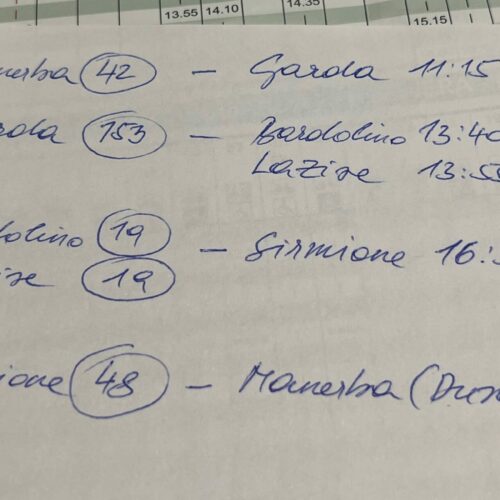 13.55 14.10
15.15
nerba 42 - Garda 11:15
rda 153 - Bardolino 13:40
Lazise 13:55
dolino 19 - Sirmione 16:
ise 19
ione 48 - Manerba (Dus